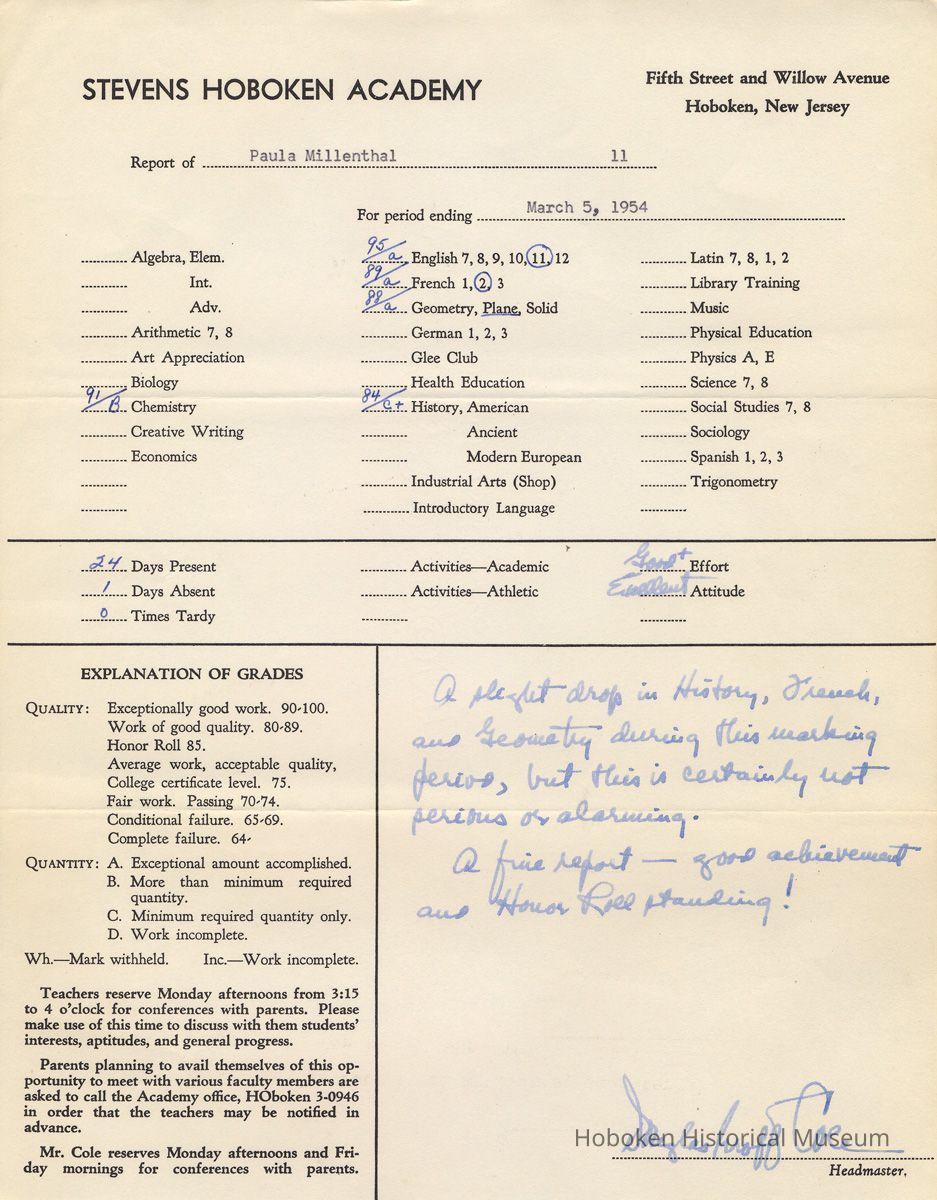 STEVENS HOBOKEN ACADEMY
Fifth Street and Willow Avenue
Hoboken, New Jersey
Report of Paula Millenthal 11
For period ending March 5, 1954
Algebra, Elem.
Int.
Adv.
Arithmetic 7, 8
Art Appreciation
Biology
91/B Chemistry
Creative Writing
Economics
95/a English 7, 8, 9, 10, 11, 12
89/a French 1, 2, 3
88/a Geometry, Plane, Solid
German 1, 2, 3
Glee Club
Health Education
84/c+ History, American
Ancient
Modern European
Industrial Arts (Shop)
Introductory Language
Latin 7, 8, 1, 2
Library Training
Music
Physical Education
Physics A, E
Science 7, 8
Social Studies 7, 8
Sociology
Spanish 1, 2, 3
Trigonometry
24 Days Present
1 Days Absent
0 Times Tardy
Activities—Academic
Activities—Athletic
Good+ Effort
Excellent Attitude
EXPLANATION OF GRADES
QUALITY: Exceptionally good work. 90-100.
Work of good quality. 80-89.
Honor Roll 85.
Average work, acceptable quality,
College certificate level. 75.
Fair work. Passing 70-74.
Conditional failure. 65-69.
Complete failure. 64-
QUANTITY: A. Exceptional amount accomplished.
B. More than minimum required
quantity.
C. Minimum required quantity only.
D. Work incomplete.
Wh.—Mark withheld. Inc.—Work incomplete.
Teachers reserve Monday afternoons from 3:15
to 4 o'clock for conferences with parents. Please
make use of this time to discuss with them students'
interests, aptitudes, and general progress.
Parents planning to avail themselves of this op-
portunity to meet with various faculty members are
asked to call the Academy office, HOboken 3-0946
in order that the teachers may be notified in
advance.
Mr. Cole reserves Monday afternoons and Fri-
day mornings for conferences with parents.
A slight drop in History, French,
and Geometry during this marking
period, but this is certainly not
serious or alarming.
A fine report — good achievement
and Honor Roll standing!
Douglas Groff Cole
Hoboken Historical Museum
Headmaster.